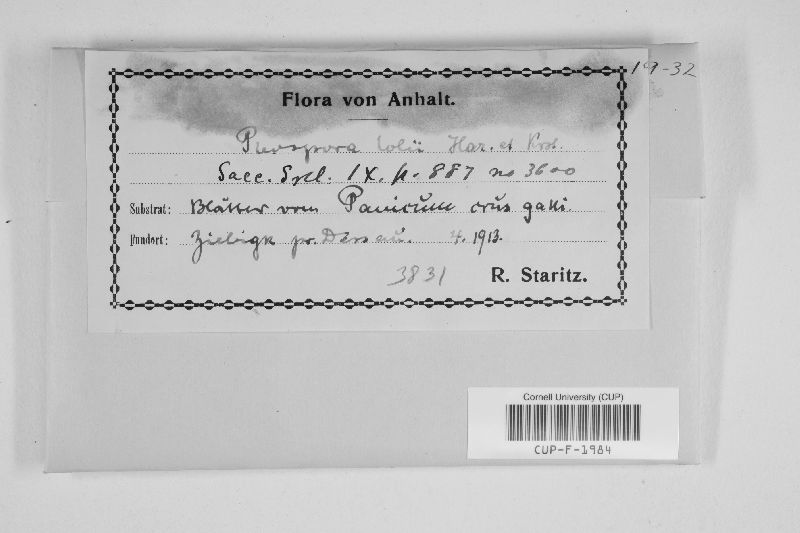 19-32
Flora von Anhalt.
Pleospora lolii Har. et Krst.
Sacc. Syll. IX. p. 887 no 3600
Substrat: Blätter vom Panicum crus galli.
Fundort: Ziebigk pr. Dessau. 4. 1913.
3831 R. Staritz.
Cornell University (CUP)
CUP-F-1984